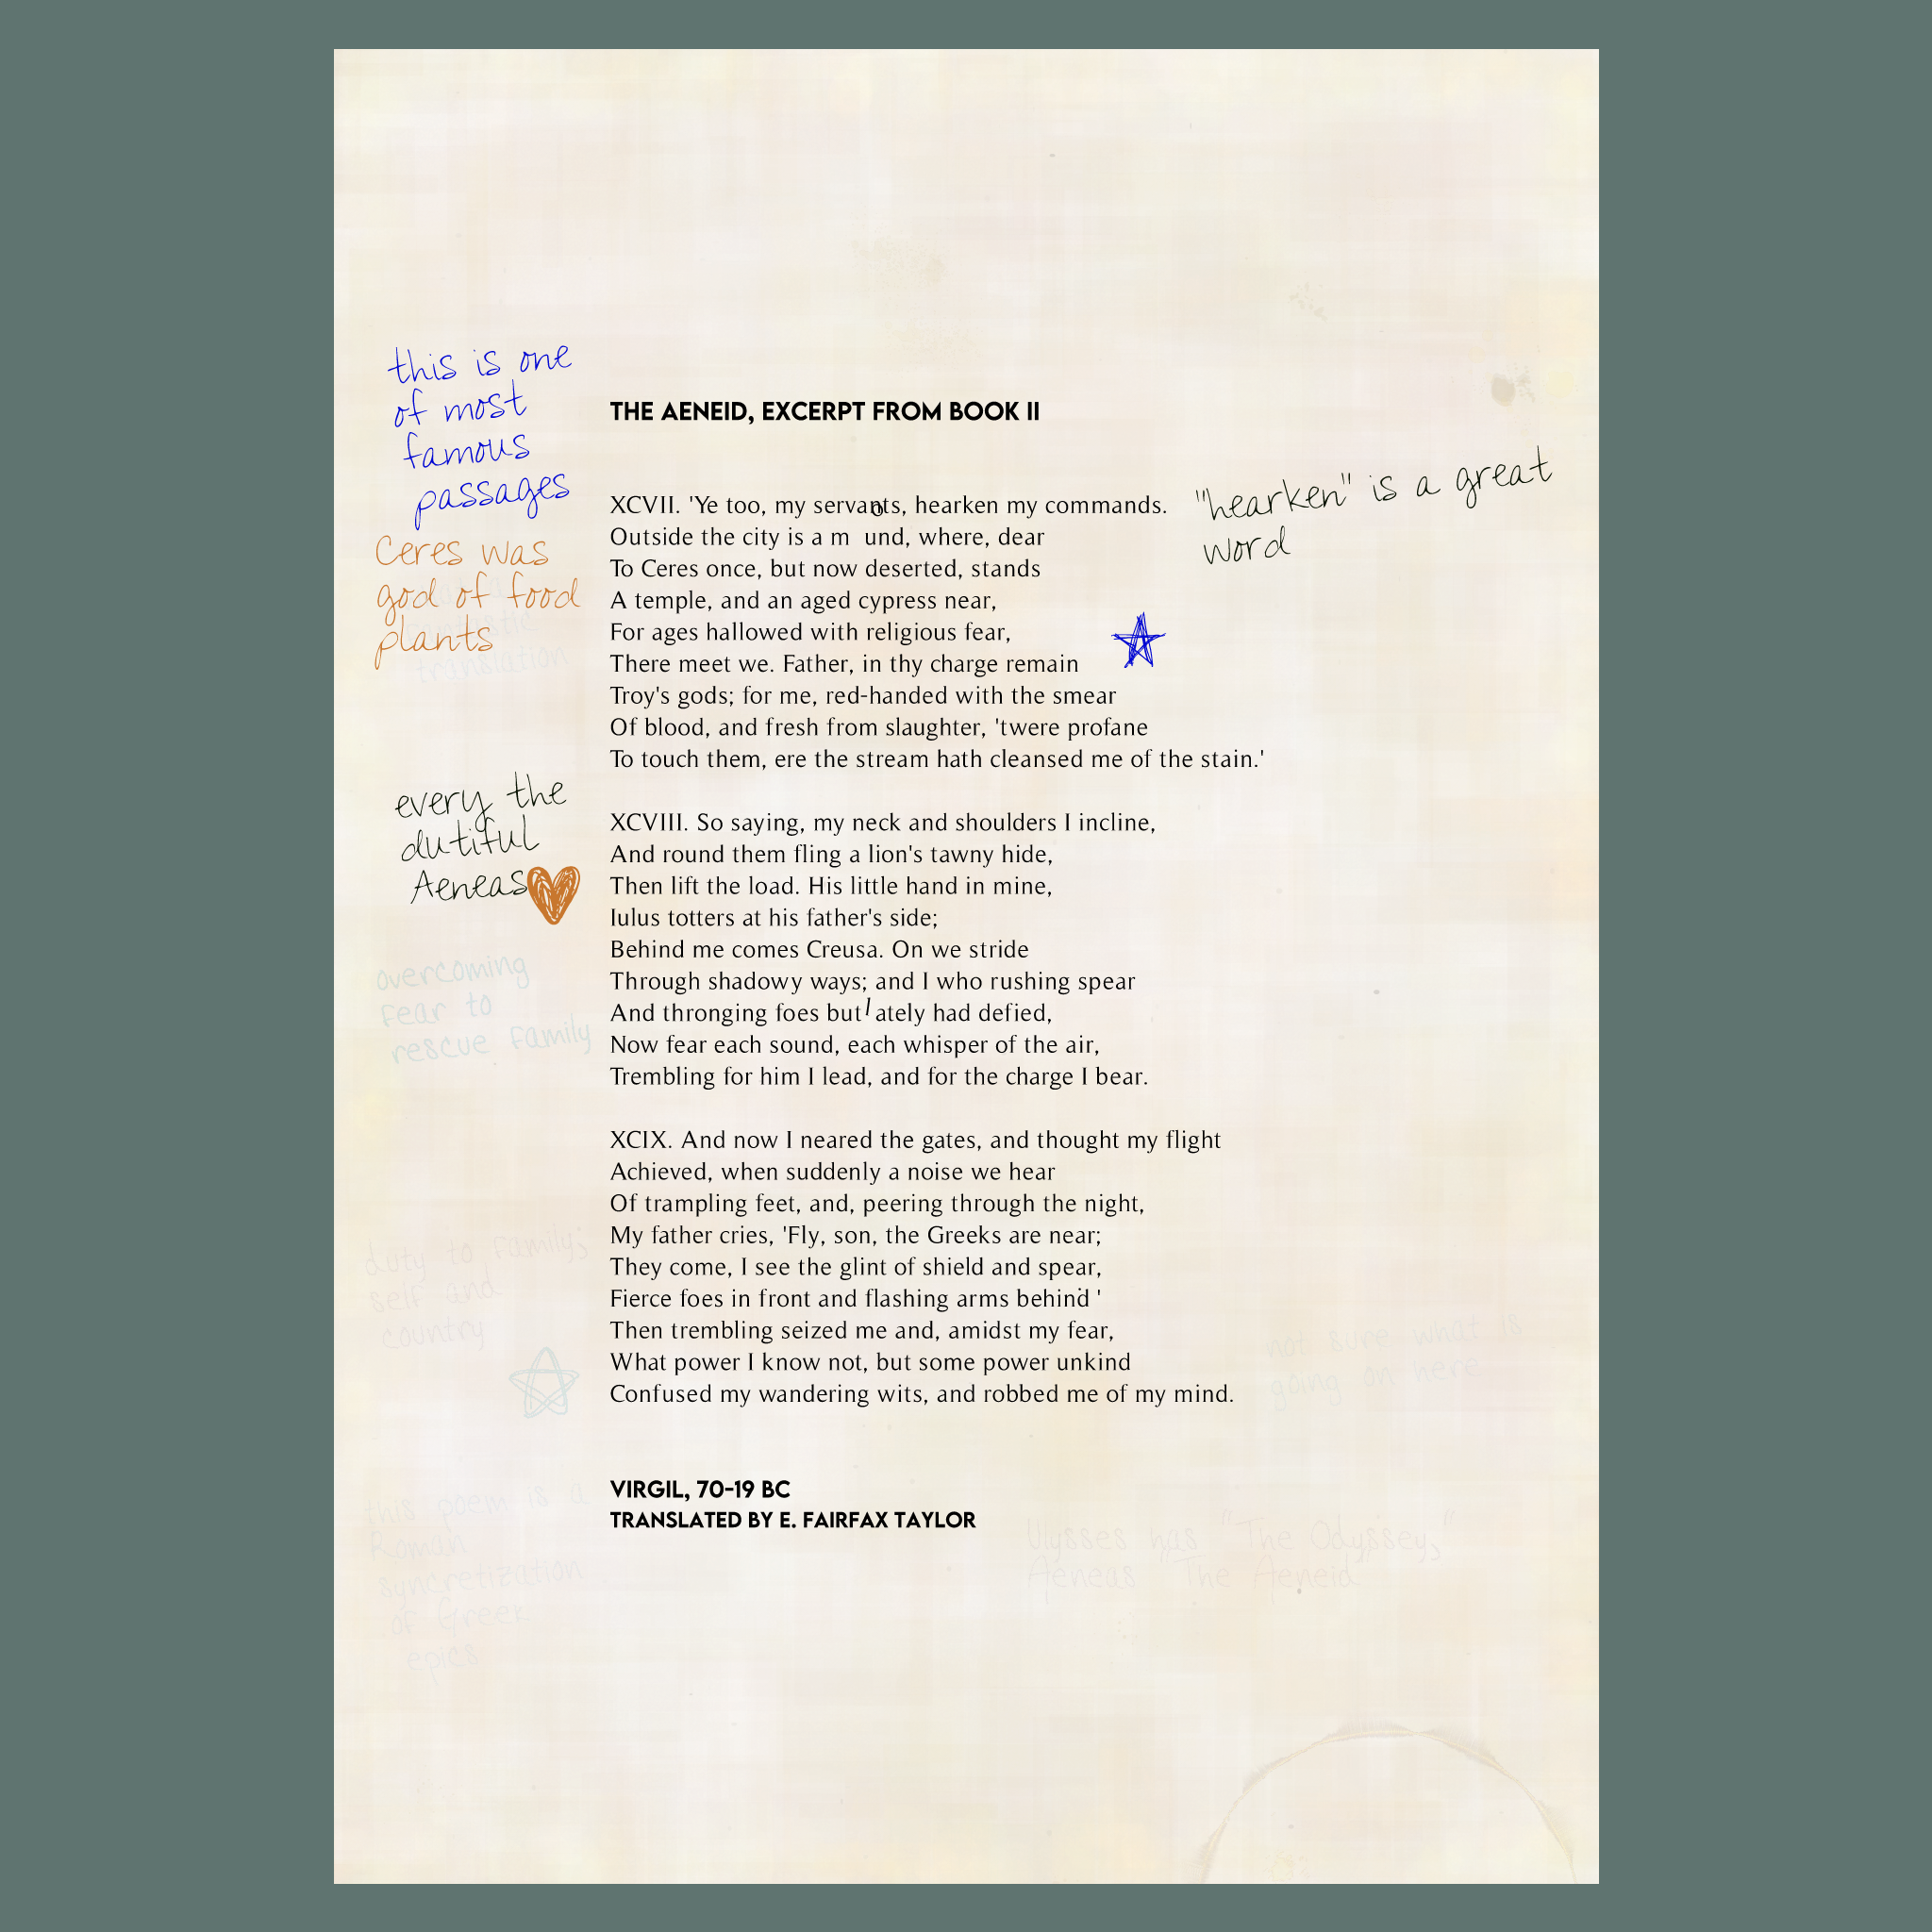 this is one
of most
famous
passages
THE AENEID, EXCERPT FROM BOOK II
"hearken" is a great
word
Ceres was
god of food
plants
translation
XCVII. 'Ye too, my servants, hearken my commands.
Outside the city is a mound, where, dear
To Ceres once, but now deserted, stands
A temple, and an aged cypress near,
For ages hallowed with religious fear,
There meet we. Father, in thy charge remain
Troy's gods; for me, red-handed with the smear
Of blood, and fresh from slaughter, 'twere profane
To touch them, ere the stream hath cleansed me of the stain.'
every the
dutiful
Aeneas
XCVIII. So saying, my neck and shoulders I incline,
And round them fling a lion's tawny hide,
Then lift the load. His little hand in mine,
Iulus totters at his father's side;
Behind me comes Creusa. On we stride
Through shadowy ways; and I who rushing spear
And thronging foes but lately had defied,
Now fear each sound, each whisper of the air,
Trembling for him I lead, and for the charge I bear.
overcoming
fear to
rescue family
XCIX. And now I neared the gates, and thought my flight
Achieved, when suddenly a noise we hear
Of trampling feet, and, peering through the night,
My father cries, 'Fly, son, the Greeks are near;
They come, I see the glint of shield and spear,
Fierce foes in front and flashing arms behind.'
Then trembling seized me and, amidst my fear,
What power I know not, but some power unkind
Confused my wandering wits, and robbed me of my mind.
duty to family,
self and
country
not sure what is
going on here
VIRGIL, 70-19 BC
TRANSLATED BY E. FAIRFAX TAYLOR
this poem is a
Roman
syncretization
of Greek
epics
Ulysses has "The Odyssey,"
Aeneas The Aeneid